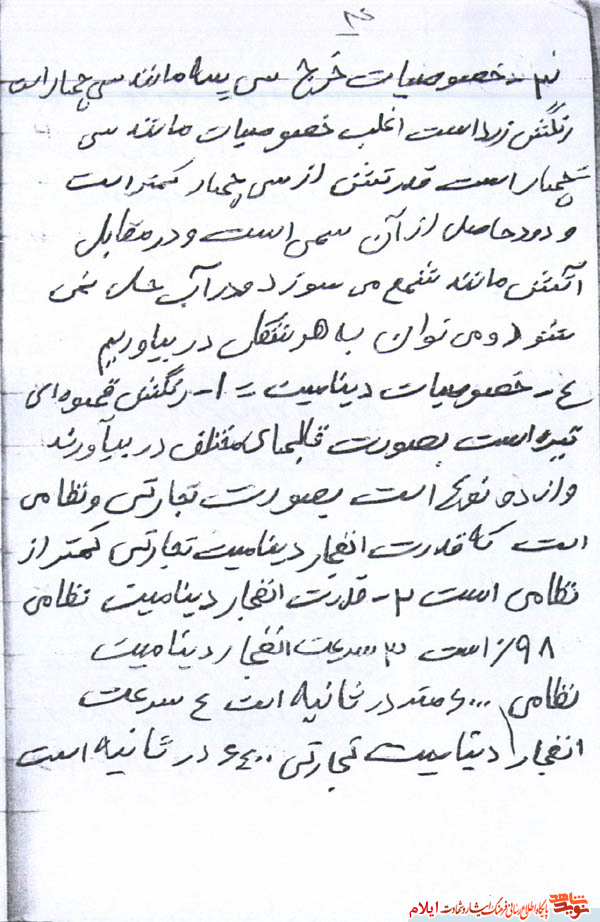 ۳- خصوصیات خرج سی پسه مانند سی چهار است
رنگش زرد است اغلب خصوصیات مانند سی
چهار است قدرتش از سی چهار کمتر است
و دود حاصل از آن سمی است و در مقابل
آتش مانند شمع می سوزد و در آب حل نمی
شود و می توان به هر شکل در بیاوریم
٤- خصوصیات دینامیت = ۱- رنگش قهوه ای
تیره است بصورت قالبهای مختلف در بیآورند
و از دو نوع است بصورت تجارتی و نظامی
است که قدرت انفجار دینامیت تجارتی کمتر از
نظامی است ۲- قدرت انفجار دینامیت نظامی
۹۸٪ است ۳ سرعت انفجار دینامیت
نظامی ۶۰۰۰ متر در ثانیه است ٤ سرعت
انفجار دینامیت تجارتی ۶٤۰۰ در ثانیه است
نوید شاهد پایگاه اطلاع رسانی فرهنگ ایثار و شهادت ایلام